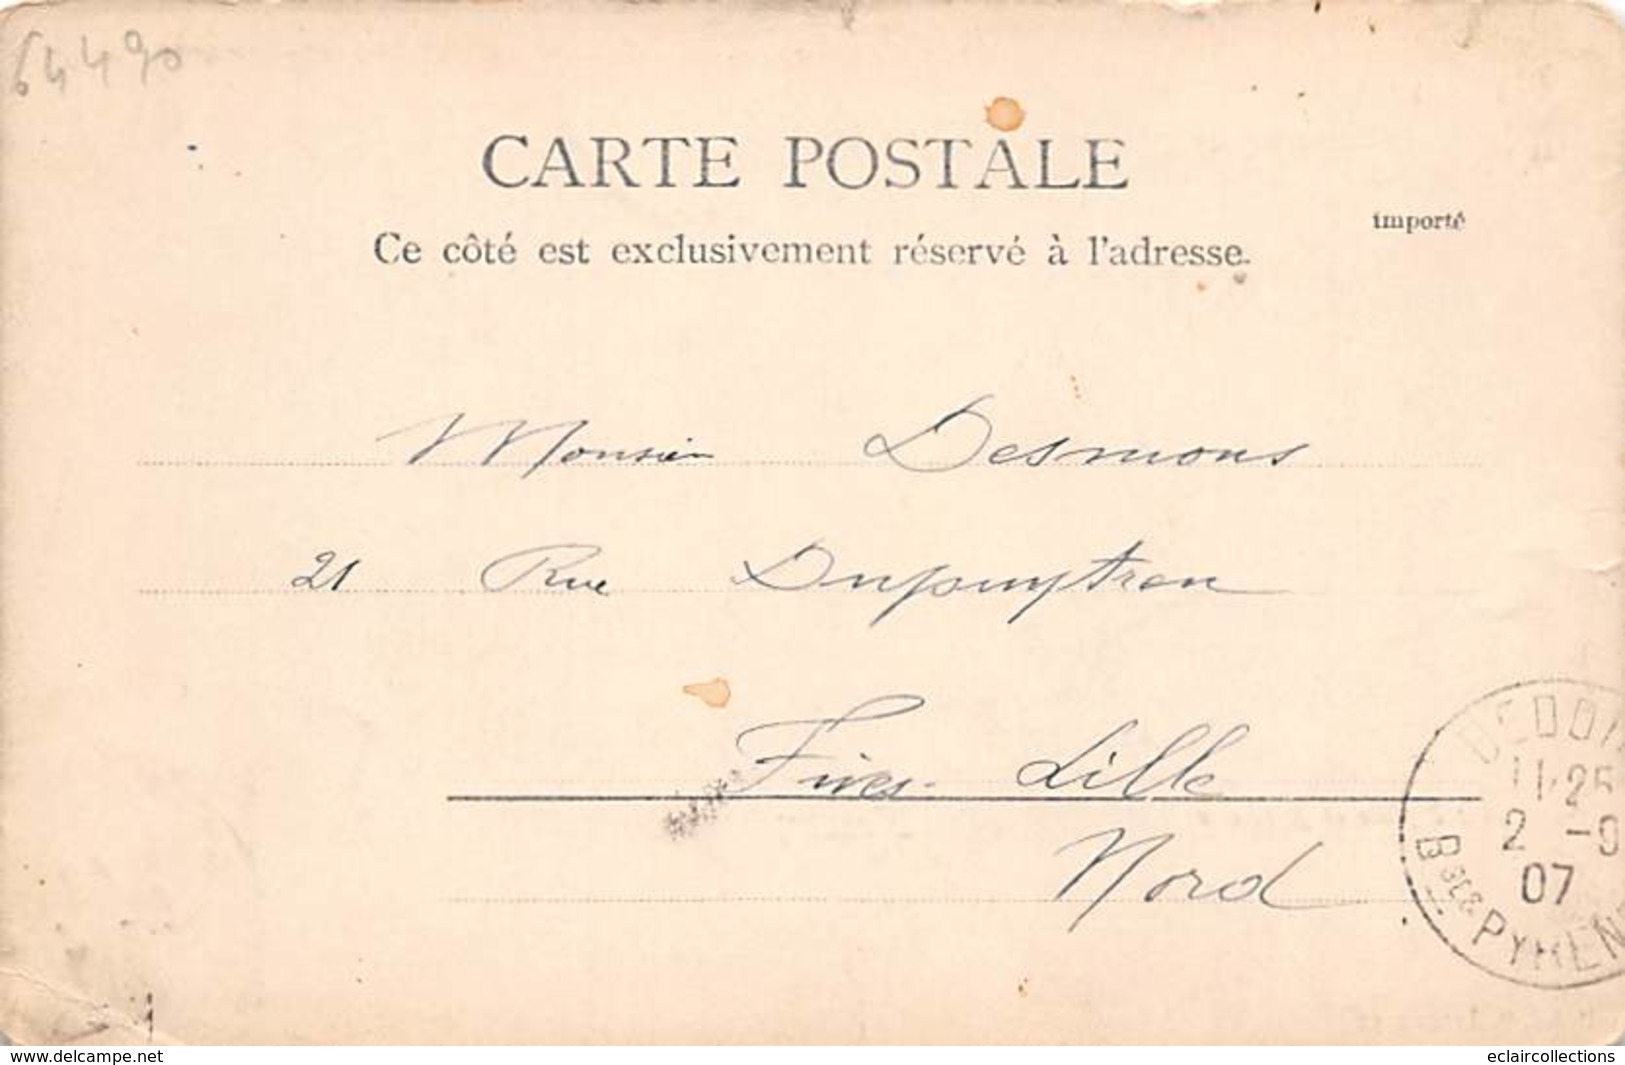 64490
CARTE POSTALE
importé
Ce côté est exclusivement réservé à l'adresse.
Monsieur Desmons
21 Rue Dupuytren
Fives-Lille
Nord
11·25
2 -9
07
Bses PYREN
www.delcampe.net
eclaircollections